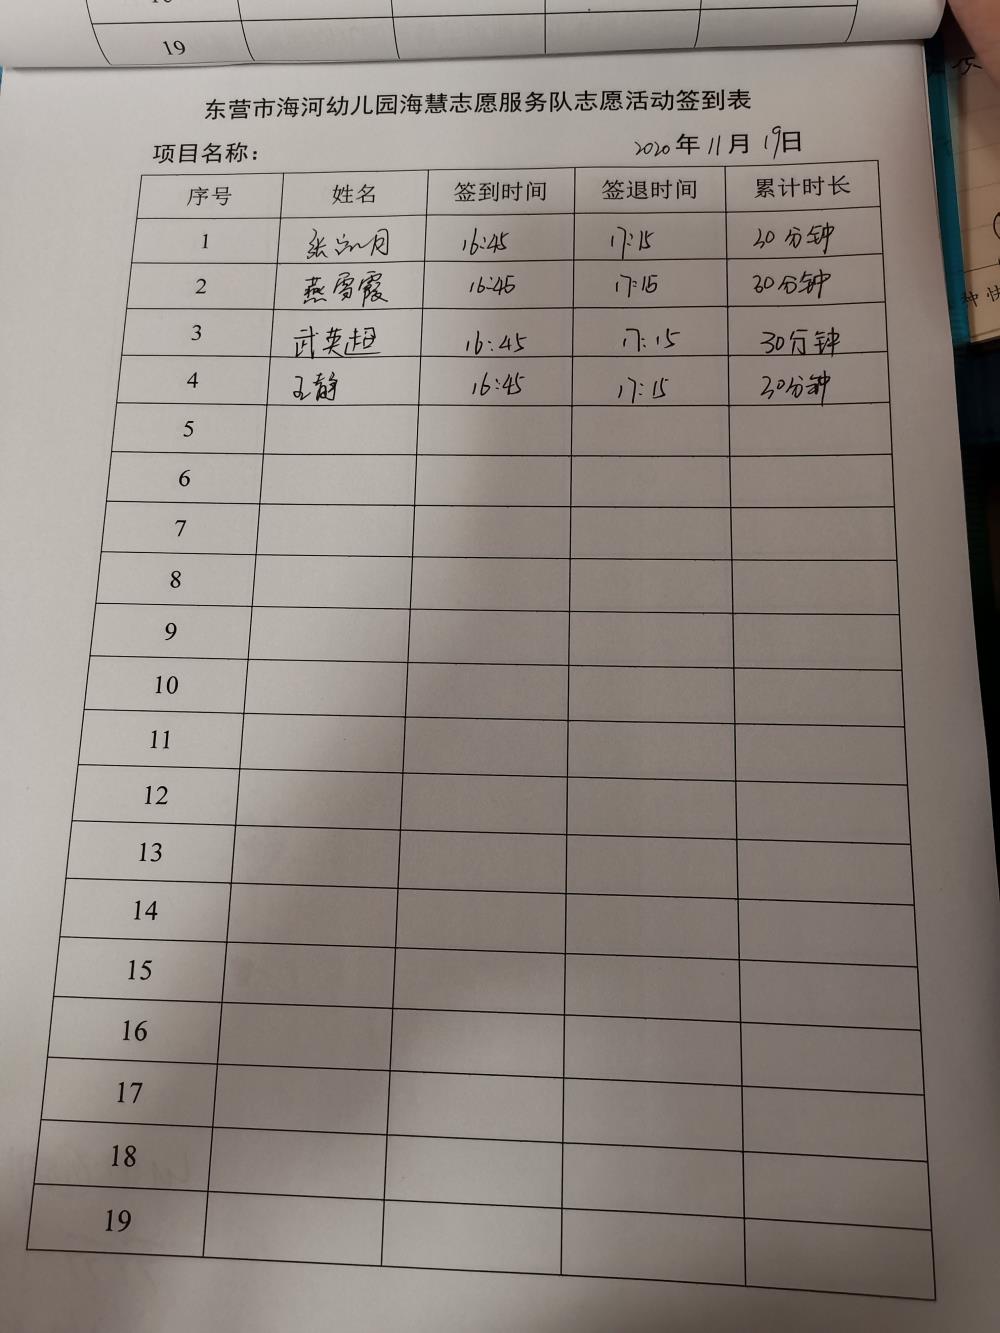 19
东营市海河幼儿园海慧志愿服务队志愿活动签到表
项目名称： 2020年11月19日
序号 姓名 签到时间 签退时间 累计时长
1 张 月 16:45 17:15 30分钟
2 燕雪霞 16:45 17:15 30分钟
3 武英超 16:45 17:15 30分钟
4 王静 16:45 17:15 30分钟
5
6
7
8
9
10
11
12
13
14
15
16
17
18
19
种快